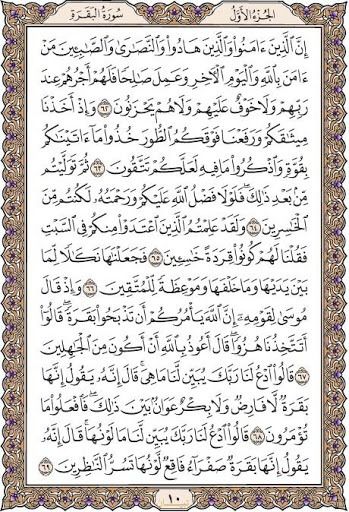 الجزء الأول سورة البقرة
إِنَّ ٱلَّذِينَ ءَامَنُوا۟ وَٱلَّذِينَ هَادُوا۟ وَٱلنَّصَٰرَىٰ وَٱلصَّٰبِـِٔينَ مَنْ
ءَامَنَ بِٱللَّهِ وَٱلْيَوْمِ ٱلْءَاخِرِ وَعَمِلَ صَٰلِحًا فَلَهُمْ أَجْرُهُمْ عِندَ
رَبِّهِمْ وَلَا خَوْفٌ عَلَيْهِمْ وَلَا هُمْ يَحْزَنُونَ ٦٢ وَإِذْ أَخَذْنَا
مِيثَٰقَكُمْ وَرَفَعْنَا فَوْقَكُمُ ٱلطُّورَ خُذُوا۟ مَآ ءَاتَيْنَٰكُم
بِقُوَّةٍ وَٱذْكُرُوا۟ مَا فِيهِ لَعَلَّكُمْ تَتَّقُونَ ٦٣ ثُمَّ تَوَلَّيْتُم
مِّنۢ بَعْدِ ذَٰلِكَ ۖ فَلَوْلَا فَضْلُ ٱللَّهِ عَلَيْكُمْ وَرَحْمَتُهُۥ لَكُنتُم مِّنَ
ٱلْخَٰسِرِينَ ٦٤ وَلَقَدْ عَلِمْتُمُ ٱلَّذِينَ ٱعْتَدَوْا۟ مِنكُمْ فِى ٱلسَّبْتِ
فَقُلْنَا لَهُمْ كُونُوا۟ قِرَدَةً خَٰسِـِٔينَ ٦٥ فَجَعَلْنَٰهَا نَكَٰلًا لِّمَا
بَيْنَ يَدَيْهَا وَمَا خَلْفَهَا وَمَوْعِظَةً لِّلْمُتَّقِينَ ٦٦ وَإِذْ قَالَ
مُوسَىٰ لِقَوْمِهِۦٓ إِنَّ ٱللَّهَ يَأْمُرُكُمْ أَن تَذْبَحُوا۟ بَقَرَةً ۖ قَالُوٓا۟
أَتَتَّخِذُنَا هُزُوًا ۖ قَالَ أَعُوذُ بِٱللَّهِ أَنْ أَكُونَ مِنَ ٱلْجَٰهِلِينَ
٦٧ قَالُوا۟ ٱدْعُ لَنَا رَبَّكَ يُبَيِّن لَّنَا مَا هِىَ ۚ قَالَ إِنَّهُۥ يَقُولُ إِنَّهَا
بَقَرَةٌ لَّا فَارِضٌ وَلَا بِكْرٌ عَوَانٌۢ بَيْنَ ذَٰلِكَ ۖ فَٱفْعَلُوا۟ مَا
تُؤْمَرُونَ ٦٨ قَالُوا۟ ٱدْعُ لَنَا رَبَّكَ يُبَيِّن لَّنَا مَا لَوْنُهَا ۚ قَالَ إِنَّهُۥ
يَقُولُ إِنَّهَا بَقَرَةٌ صَفْرَآءُ فَاقِعٌ لَّوْنُهَا تَسُرُّ ٱلنَّٰظِرِينَ ٦٩
١٠